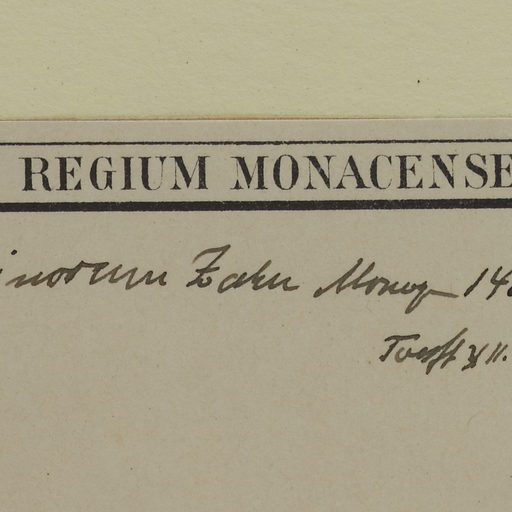 REGIUM MONACENSE
inorum Zahn Monogr 14